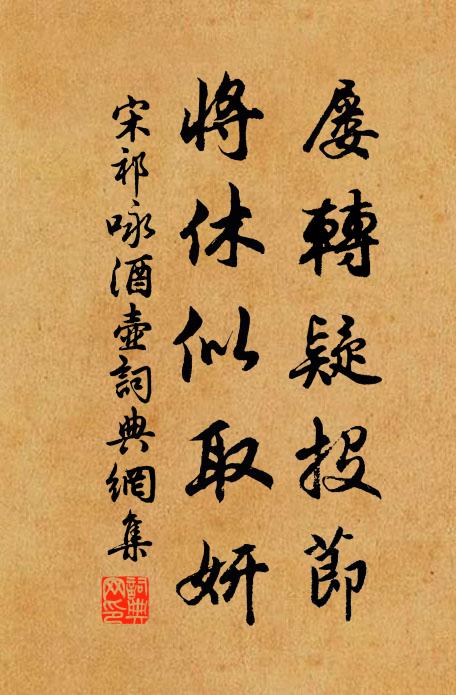 屡轉疑投節
将休似取妍
宋祁咏酒壺詞典網集
詞典网印